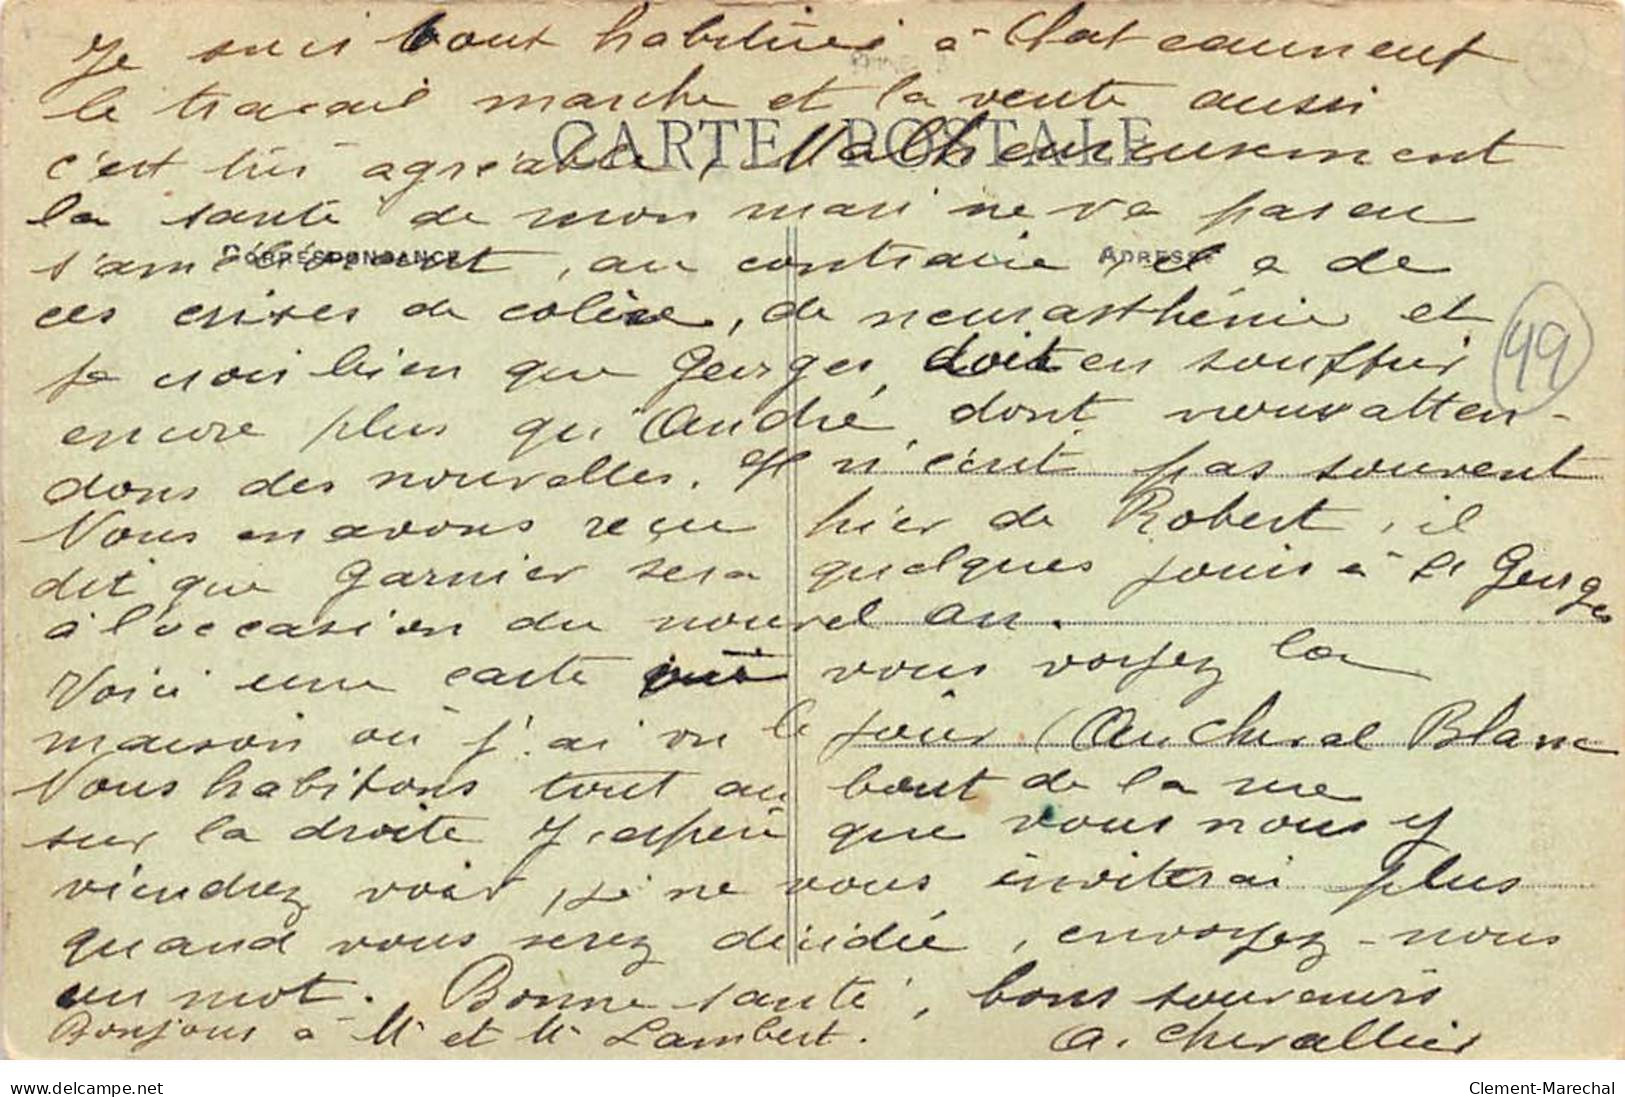 Je suis tout habituée à Chateauneuf
le travail marche et la vente aussi
c'est très agréable, Malheureusement
la santé de mon mari ne va pas en
s'améliorant, au contraire, il a de
ces crises de colère, de neurasthénie et
je crois bien que Georges doit en souffrir
encore plus qu'André, dont nous atten-
dons des nouvelles. Il n'écrit pas souvent
Nous en avons reçu hier de Robert, il
dit que Garnier sera quelques jours à St Georges
à l'occasion du nouvel an.
Voici une carte vous voyez la
maison où j'ai vu le jour (Au Cheval Blanc
Nous habitons tout au bout de la rue
sur la droite J'espère que vous nous y
viendrez voir, je ne vous inviterai plus
quand vous serez décidée, envoyez-nous
un mot. Bonne santé, bons souvenirs
Bonjour à Mr et Me Lambert. A. Chevallier
CARTE POSTALE
CORRESPONDANCE
ADRESSE
49
www.delcampe.net
Clement-Marechal